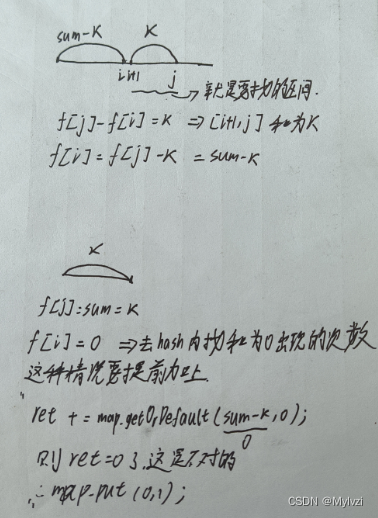 sum-K K
i i+1 j
→ 就是要找的区间.
f[j]-f[i]=K ⇒ [i+1,j] 和为K
f[i]=f[j]-K =sum-K
K
f[j]:sum=K
f[i]=0 ⇒去hash内找和为0出现的次数
这种情况要提前加上
ret += map.getOrDefault(sum-k,0);
0
则ret=0了,这是不对的
∴ map.put(0,1);
CSDN @Mylvzi